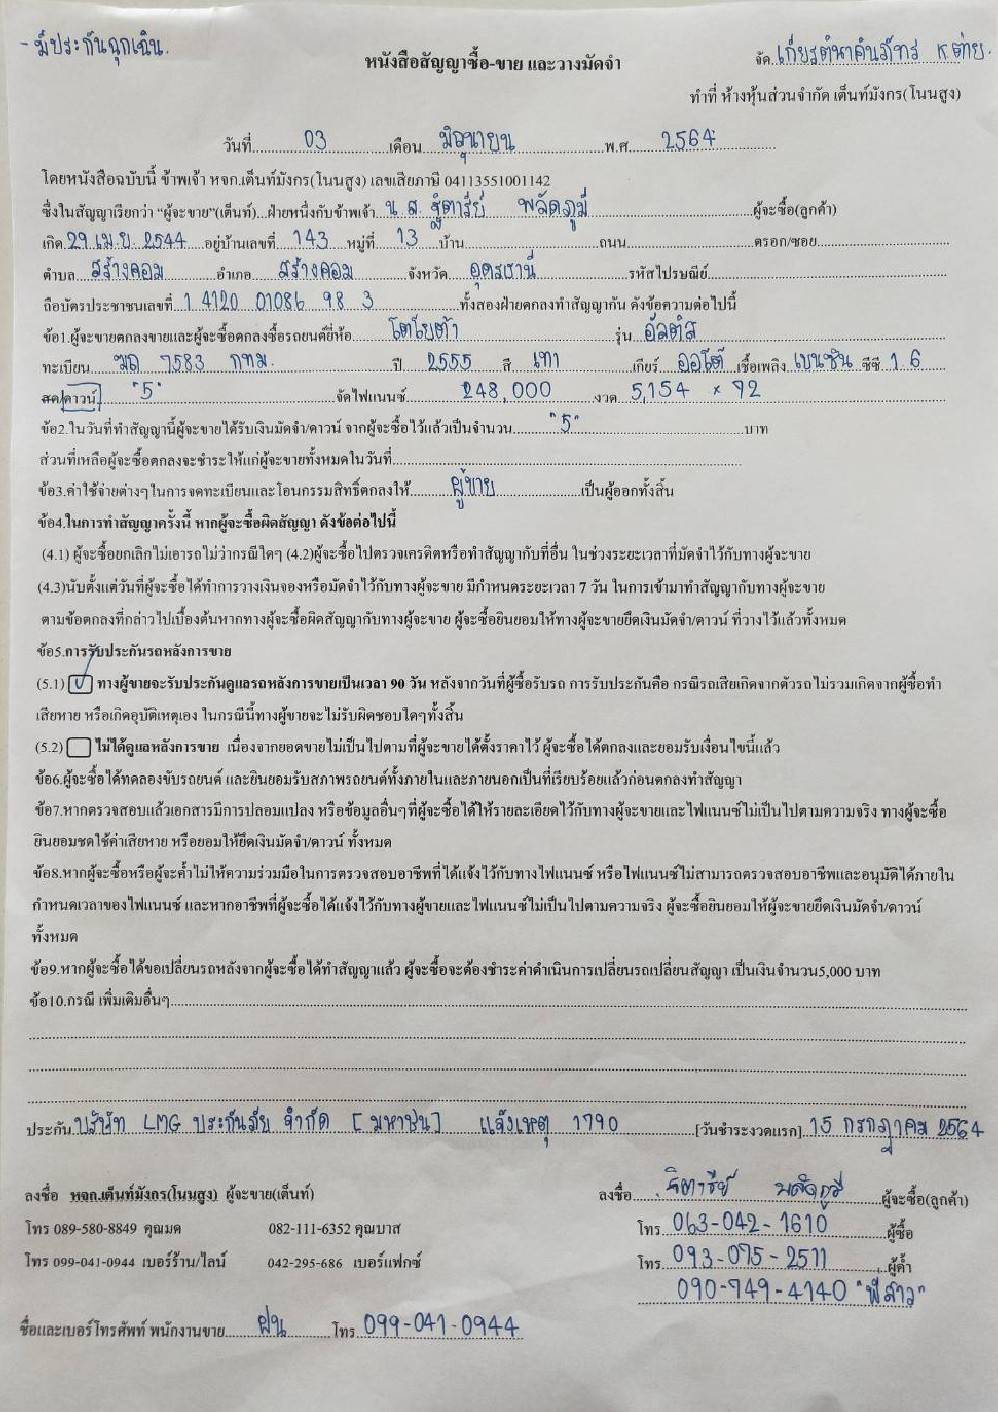 - มีประกันฉุกเฉิน.
หนังสือสัญญาซื้อ-ขาย และวางมัดจำ
จัด. เกียรตินาคินภัทร K.ต่าย.
ทำที่ ห้างหุ้นส่วนจำกัด เต็นท์มังกร(โนนสูง)
วันที่ 03 เดือน มิถุนายน พ.ศ. 2564
โดยหนังสือฉบับนี้ ข้าพเจ้า หจก.เต็นท์มังกร(โนนสูง) เลขเสียภาษี 04113551001142
ซึ่งในสัญญาเรียกว่า “ผู้จะขาย”(เต็นท์)...ฝ่ายหนึ่งกับข้าพเจ้า น.ส. ฐิตารีย์ พลัดภูมี ผู้จะซื้อ(ลูกค้า)
เกิด 29 เม.ย. 2544 อยู่บ้านเลขที่ 143 หมู่ที่ 13 บ้าน ถนน ตรอก/ซอย
ตำบล สร้างคอม อำเภอ สร้างคอม จังหวัด อุดรธานี รหัสไปรษณีย์
ถือบัตรประชาชนเลขที่ 1 4120 01086 98 3 ทั้งสองฝ่ายตกลงทำสัญญากัน ดังข้อความต่อไปนี้
ข้อ1.ผู้จะขายตกลงขายและผู้จะซื้อตกลงซื้อรถยนต์ยี่ห้อ โตโยต้า รุ่น อัลติส
ทะเบียน ฆถ 7583 กทม. ปี 2555 สี เทา เกียร์ ออโต้ เชื้อเพลิง เบนซิน ซีซี 1.6
สด/ดาวน์ "5" จัดไฟแนนซ์ 248,000 งวด 5,154 × 72
ข้อ2.ในวันที่ทำสัญญานี้ผู้จะขายได้รับเงินมัดจำ/ดาวน์ จากผู้จะซื้อไว้แล้วเป็นจำนวน "5" บาท
ส่วนที่เหลือผู้จะซื้อตกลงจะชำระให้แก่ผู้จะขายทั้งหมดในวันที่
ข้อ3.ค่าใช้จ่ายต่างๆ ในการ จดทะเบียนและโอนกรรมสิทธิ์ตกลงให้ ผู้ขาย เป็นผู้ออกทั้งสิ้น
ข้อ4.ในการทำสัญญาครั้งนี้ หากผู้จะซื้อผิดสัญญา ดังข้อต่อไปนี้
(4.1) ผู้จะซื้อยกเลิกไม่เอารถไม่ว่ากรณีใดๆ (4.2)ผู้จะซื้อไปตรวจเครดิตหรือทำสัญญากับที่อื่น ในช่วงระยะเวลาที่มัดจำไว้กับทางผู้จะขาย
(4.3)นับตั้งแต่วันที่ผู้จะซื้อได้ทำการวางเงินจองหรือมัดจำไว้กับทางผู้จะขาย มีกำหนดระยะเวลา 7 วัน ในการเข้ามาทำสัญญากับทางผู้จะขาย
ตามข้อตกลงที่กล่าวไปเบื้องต้นหากทางผู้จะซื้อผิดสัญญากับทางผู้จะขาย ผู้จะซื้อยินยอมให้ทางผู้จะขายยึดเงินมัดจำ/ดาวน์ ที่วางไว้แล้วทั้งหมด
ข้อ5.การรับประกันรถหลังการขาย
(5.1) ✓ ทางผู้ขายจะรับประกันดูแลรถหลังการขายเป็นเวลา 90 วัน หลังจากวันที่ผู้ซื้อรับรถ การรับประกันคือ กรณีรถเสียเกิดจากตัวรถ ไม่รวมเกิดจากผู้ซื้อทำ
เสียหาย หรือเกิดอุบัติเหตุเอง ในกรณีนี้ทางผู้ขายจะไม่รับผิดชอบใดๆทั้งสิ้น
(5.2) ไม่ได้ดูแลหลังการขาย เนื่องจากยอดขายไม่เป็นไปตามที่ผู้จะขายได้ตั้งราคาไว้ ผู้จะซื้อได้ตกลงและยอมรับเงื่อนไขนี้แล้ว
ข้อ6.ผู้จะซื้อได้ทดลองขับรถยนต์ และยินยอมรับสภาพรถยนต์ทั้งภายในและภายนอกเป็นที่เรียบร้อยแล้วก่อนตกลงทำสัญญา
ข้อ7.หากตรวจสอบแล้วเอกสารมีการปลอมแปลง หรือข้อมูลอื่นๆที่ผู้จะซื้อได้ให้รายละเอียดไว้กับทางผู้จะขายและไฟแนนซ์ไม่เป็นไปตามความจริง ทางผู้จะซื้อ
ยินยอมชดใช้ค่าเสียหาย หรือยอมให้ยึดเงินมัดจำ/ดาวน์ ทั้งหมด
ข้อ8.หากผู้จะซื้อหรือผู้จะค้ำไม่ให้ความร่วมมือในการตรวจสอบอาชีพที่ได้แจ้งไว้กับทางไฟแนนซ์ หรือไฟแนนซ์ไม่สามารถตรวจสอบอาชีพและอนุมัติได้ภายใน
กำหนดเวลาของไฟแนนซ์ และหากอาชีพที่ผู้จะซื้อได้แจ้งไว้กับทางผู้ขายและไฟแนนซ์ไม่เป็นไปตามความจริง ผู้จะซื้อยินยอมให้ผู้จะขายยึดเงินมัดจำ/ดาวน์
ทั้งหมด
ข้อ9.หากผู้จะซื้อได้ขอเปลี่ยนรถหลังจากผู้จะซื้อได้ทำสัญญาแล้ว ผู้จะซื้อจะต้องชำระค่าดำเนินการเปลี่ยนรถเปลี่ยนสัญญา เป็นเงินจำนวน5,000 บาท
ข้อ10.กรณี เพิ่มเติมอื่นๆ
ประกัน บริษัท LMG ประกันภัย จำกัด [ มหาชน ] แจ้งเหตุ 1790 [วันชำระงวดแรก] 15 กรกฎาคม 2564
ลงชื่อ หจก.เต็นท์มังกร(โนนสูง) ผู้จะขาย(เต็นท์)
ลงชื่อ ฐิตารีย์ พลัดภูมี ผู้จะซื้อ(ลูกค้า)
โทร 089-580-8849 คุณมด 082-111-6352 คุณบาส
โทร 063-042-1610 ผู้ซื้อ
โทร 099-041-0944 เบอร์ร้าน/ไลน์ 042-295-686 เบอร์แฟกซ์
โทร 093-075-2511 ผู้ค้ำ
090-749-4140 "พี่สาว"
ชื่อและเบอร์โทรศัพท์ พนักงานขาย ฝน โทร 099-041-0944